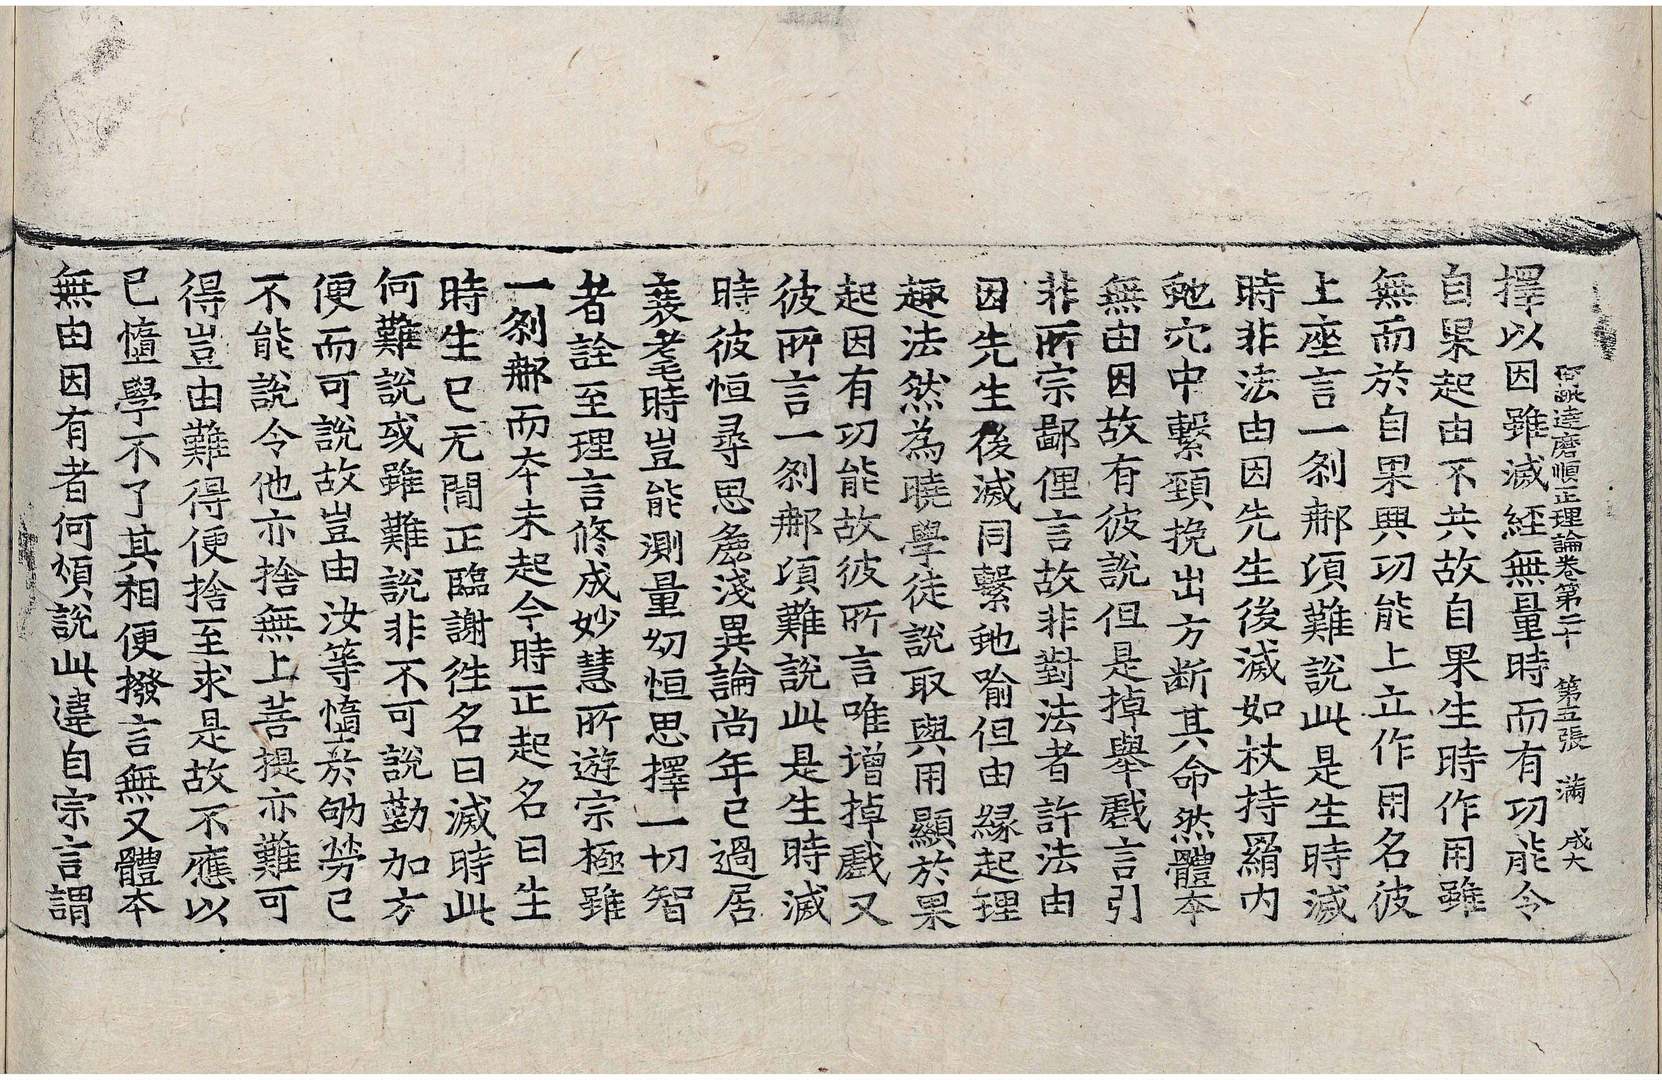 阿毗達磨順正理論卷第二十 第五張 滿 成大
擇以因雖滅經無量時而有功能令
自果起由不共故自果生時作用雖
無而於自果興功能上立作用名彼
上座言一剎那頃難說此是生時滅
時非法由因先生後滅如杖持羂內
虵穴中繫頸挽出方断其命然體本
無由因故有彼說但是掉舉戲言引
非所宗鄙俚言故非對法者許法由
因先生後滅同繫虵喻但由緣起理
趣法然為曉學徒說取與用顯於果
起因有功能故彼所言唯增掉戲又
彼所言一剎那頃難說此是生時滅
時彼恒尋思麁淺異論尚年已過居
衰耄時豈能測量幼恒思擇一切智
者詮至理言修成妙慧所遊宗極雖
一剎那而本未起今時正起名曰生
時生已无閒正臨謝往名曰滅時此
何難說或雖難說非不可說勤加方
便而可說故豈由汝等憻於劬勞已
不能說令他亦捨無上菩提亦難可
得豈由難得便捨至求是故不應以
已憻學不了其相便撥言無又體本
無由因有者何煩說此違自宗言謂